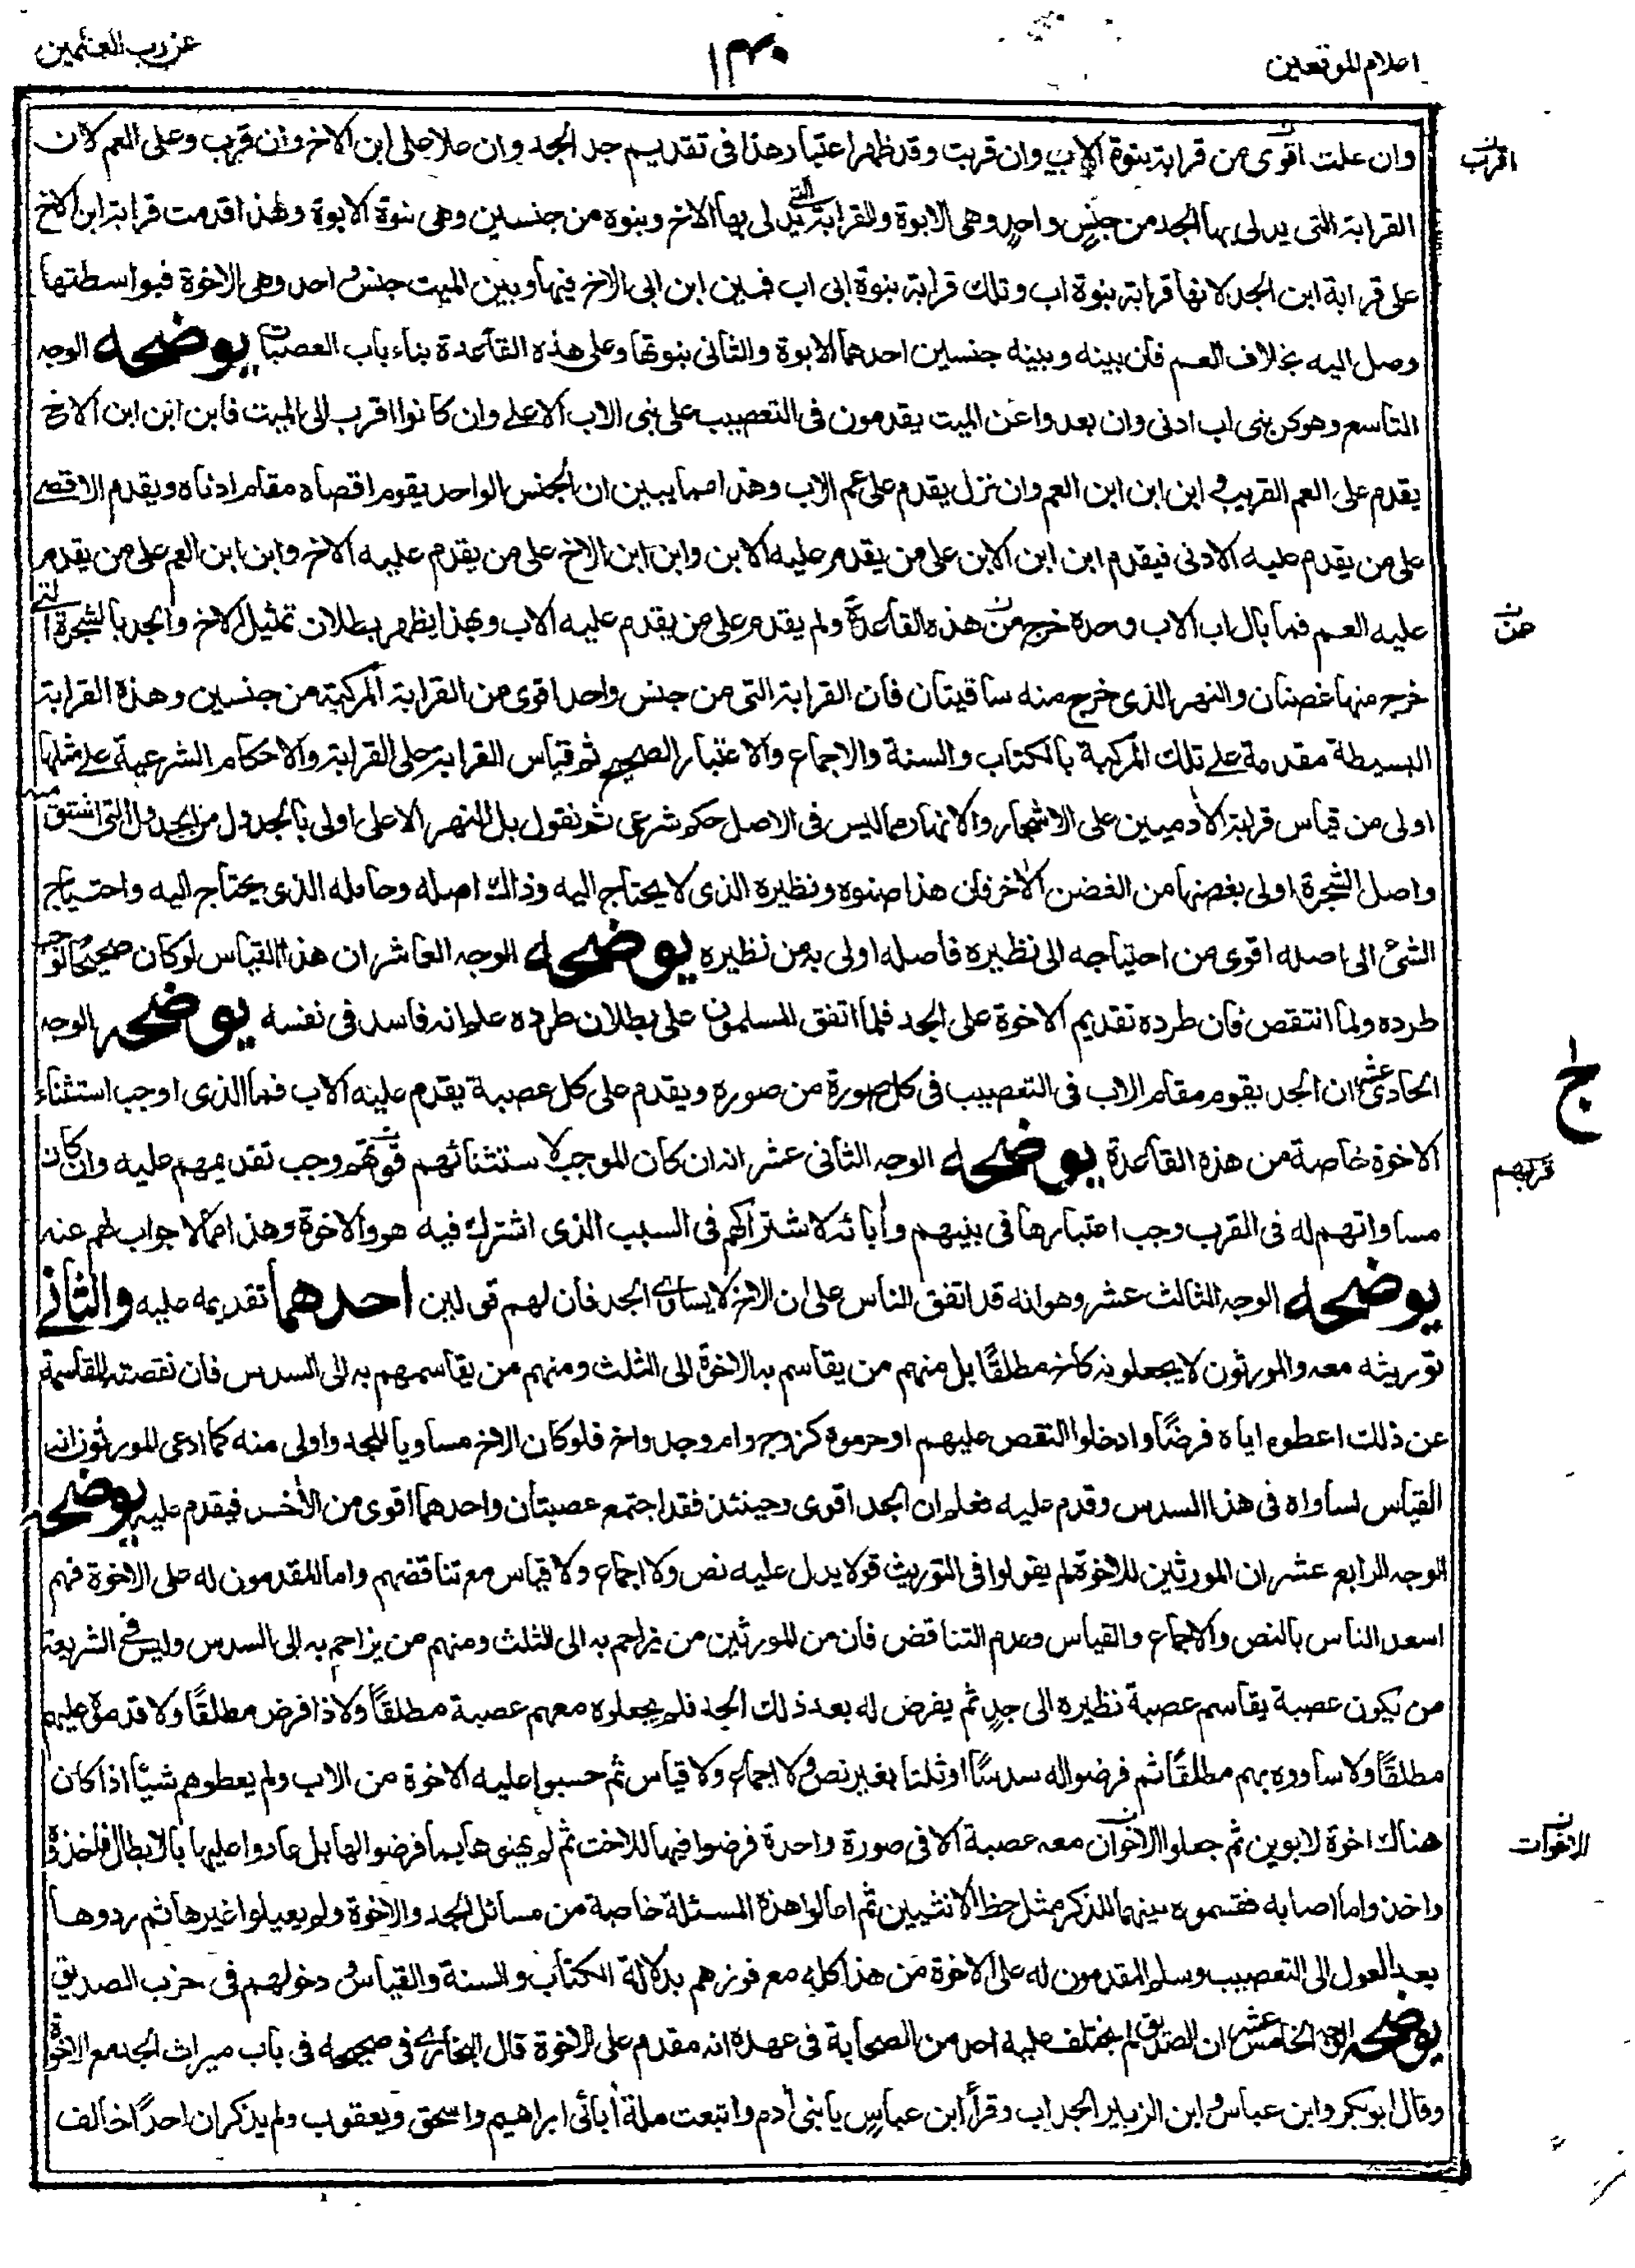 اعلام الموقعين
١٤٠
عن رب العلمين
وان علت اقوى من قرابة بنوة الاب وان قربت وقد ظهر اعتبار هذا فى تقديم جد الجد وان علا على ابن الاخ وان قرب وعلى العم لان
اقرب
القرابة التى يدلى بها الجد من جنس واحد وهى الابوة والقرابة التى يدلى بها الاخ وبنوه من جنسين وهى بنوة الابوة ولهذا قدمت قرابة ابن الاخ
على قرابة ابن الجد لانها قرابة بنوة اب وتلك قرابة بنوة ابى اب فبين ابن ابى الاخ فيها وبين الميت جنس واحد وهى الاخوة فبواسطتها
وصل اليه بخلاف العم فان بينه وبينه جنسين احدهما الابوة والثانى بنوتها وعلى هذه القاعدة بناء باب العصبات يوضحه الوجه
التاسع وهو كن بنى اب ادنى وان بعدوا عن الميت يقدمون فى التعصيب على بنى الاب الاعلى وان كانوا اقرب الى الميت فابن ابن ابن الاخ
يقدم على العم القريب و ابن ابن ابن العم وان نزل يقدم على عم الاب وهذا مما يبين ان الجنس الواحد يقوم اقصاه مقام ادناه ويقدم الاقصى
على من يقدم عليه الادنى فيقدم ابن ابن الابن على من يقدم عليه الابن وابن ابن الاخ على من يقدم عليه الاخ وابن ابن العم على من يقدم
عليه العم فما بال اب الاب وحده خرج من هذه القاعدة ولم يقدم على من يقدم عليه الاب وبهذا يظهر بطلان تمثيل الاخ والجد بالشجرة التى
من
خرج منها غصنان والنهر الذى خرج منه ساقيتان فان القرابة التى من جنس واحد اقوى من القرابة المركبة من جنسين وهذه القرابة
البسيطة مقدمة على تلك المركبة بالكتاب والسنة والاجماع والاعتبار الصحيح ثم قياس القرابة على القرابة والاحكام الشرعية على مثلها
اولى من قياس قرابة الآدميين على الاشجار والانهار مما ليس فى الاصل حكم شرعى ثم نقول بل النهر الاعلى اولى بالجدول من الجدول التى اشتق منه
واصل الشجرة اولى بغصنها من الغصن الآخر فان هذا صنوه ونظيره الذى لا يحتاج اليه وذاك اصله وحامله الذى يحتاج اليه واحتياج
الشئ الى اصله اقوى من احتياجه الى نظيره فاصله اولى به من نظيره يوضحه الوجه العاشر ان هذا القياس لو كان صحيحا لوجب
طرده ولما انتقض فان طرده تقديم الاخوة على الجد فلما اتفق المسلمون على بطلان طرده علم انه فاسد فى نفسه يوضحه الوجه
الحادى عشر ان الجد يقوم مقام الاب فى التعصيب فى كل صورة من صوره ويقدم على كل عصبة يقدم عليه الاب فما الذى اوجب استثناء
الاخوة خاصة من هذه القاعدة يوضحه الوجه الثانى عشر انه ان كان الموجب لاستثنائهم قوتهم وجب تقديمهم عليه وان كان
قربهم
مساواتهم له فى القرب وجب اعتبارها فى بنيهم وآبائه لاشتراكهم فى السبب الذى اشترك فيه هو والاخوة وهذا مما لا جواب لهم عنه
يوضحه الوجه الثالث عشر وهو انه قد اتفق الناس على ان الاخ لا يساوى الجد فان لهم قولين احدهما تقديمه عليه والثانى
توريثه معه والمورثون لا يجعلونه كاخ مطلقًا بل منهم من يقاسم به الاخوة الى الثلث ومنهم من يقاسمهم به الى السدس فان نقصته المقاسمة
عن ذلك اعطوه اياه فرضًا وادخلوا النقص عليهم او حرموه كزوج وام وجد واخ فلو كان الاخ مساويا للجد واولى منه كما ادعى المورثون انه
القياس لساواه فى هذا السدس وقدم عليه فعلم ان الجد اقوى وحينئذ فقد اجتمع عصبتان واحدهما اقوى من الآخر فيقدم عليه يوضحه
الوجه الرابع عشر ان المورثين للاخوة لم يقولوا فى التوريث قولا يدل عليه نص ولا اجماع ولا قياس مع تناقضهم واما المقدمون له على الاخوة فهم
اسعد الناس بالنص والاجماع والقياس وعدم التناقض فان من المورثين من يزاحم به الى الثلث ومنهم من يزاحم به الى السدس وليس فى الشريعة
من يكون عصبة يقاسم عصبة نظيره الى حد ثم يفرض له بعد ذلك الحد فلم يجعلوه معهم عصبة مطلقًا ولا ذا فرض مطلقًا ولا قدموه عليهم
مطلقًا ولا ساووه بهم مطلقًا ثم فرضوا له سدسًا او ثلثا بغير نص ولا اجماع ولا قياس ثم حسبوا عليه الاخوة من الاب ولم يعطوهم شيئا اذا كان
هناك اخوة لابوين ثم جعلوا الاخوان معه عصبة الا فى صورة واحدة فرضوا فيها للاخت ثم لم يهنوها بما فرضوا لها بل عادوا عليها بالابطال فاخذوه
الاخوات
واخذوا ما اصابه فقسموه بينهما للذكر مثل حظ الانثيين ثم اعالوا هذه المسئلة خاصة من مسائل الجد والاخوة ولم يعيلوا غيرها ثم ردوها
بعد العول الى التعصيب وسلم المقدمون له على الاخوة من هذا كله مع فوزهم بدلالة الكتاب والسنة والقياس و دخولهم فى حزب الصديق
يوضحه الوجه الخامس عشر ان الصديق لم يختلف عليه احد من الصحابة فى عهده انه مقدم على الاخوة قال البخارى فى صحيحه فى باب ميراث الجد مع الاخوة
وقال ابو بكر وابن عباس و ابن الزبير الجد اب وقرأ ابن عباس يا بنى آدم واتبعت ملة آبائى ابراهيم واسحق ويعقوب ولم يذكر ان احدًا خالف